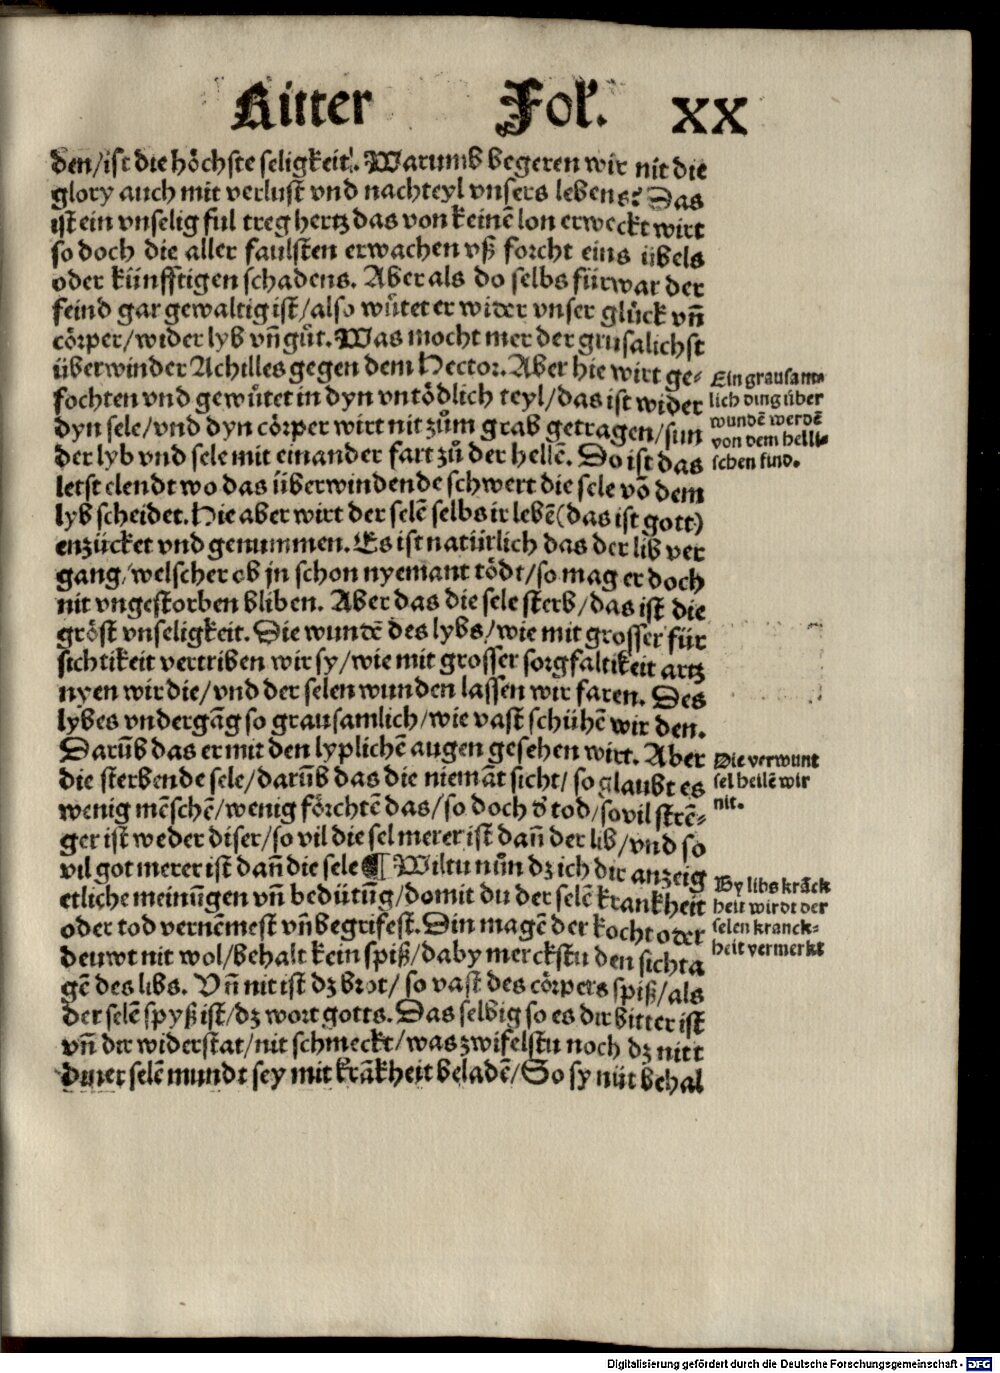 Ritter Fol. XX
den/ist die höchste seligkeit. Warumb begeren wir nit die
glory auch mit verlust vnd nachteyl vnsers lebens? Das
ist ein vnselig ful treg hertz das von keinē lon erweckt wirt
so doch die aller faulsten erwachen vß forcht eins übels
oder künfftigen schadens. Aber als do selbs fürwar der
feind gar gewaltig ist/also wůtet er wider vnser glück vn̄
cörper/wider lyb vn̄ gůt. Was mocht mer der grusalichst
überwinder Achilles gegen dem Hector. Aber hie wirt ge⸗
fochten vnd gewůtet in dyn vntödlich teyl/das ist wider
dyn sele/vnd dyn cörper wirt nit zům grab getragen/sun
der lyb vnd sele mit einander fart zů der hellē. Do ist das
letst elendt wo das überwindende schwert die sele vō dem
lyb scheidet. Hie aber wirt der selē selbs ir lebē(das ist gott)
enzücket vnd genummen. Es ist natürlich das der lib ver
gang/welscher ob jn schon nyemant tödt/so mag er doch
nit vngestorben bliben. Aber das die sele sterb/das ist die
gröst vnseligkeit. Die wundē des lybs/wie mit grosser für
sichtikeit vertriben wir sy/wie mit grosser sorgfaltikeit artz
nyen wir die/vnd der selen wunden lassen wir faren. Des
lybes vndergāg so grausamlich/wie vast schühē wir den.
Darūb das er mit den lyplichē augen gesehen wirt. Aber
die sterbende sele/darūb das die niemāt sicht/so glaubt es
wenig mēschē/wenig förchtē das/so doch d' tod/so vil strē⸗
ger ist weder diser/so vil die sel merer ist dan̄ der lib/vnd so
vil got merer ist dan̄ die sele ¶ Wiltu nůn dz ich dir anzeig
etliche meinūgen vn̄ bedütūg/domit du der selē krankheit
oder tod vernēmest vn̄ begrifest. Din magē der kocht oder
deuwt nit wol/behalt kein spiß/daby merckstu den sichta
gē des libs. Vn̄ nit ist dz brot/so vast des cörpers spiß/als
der selē spyß ist/dz wort gotts. Das selbig so es dir bitter ist
vn̄ dir widerstat/nit schmeckt/was zwifelstu noch dz nit t
diner selē mundt sey mit krākheit beladē/So sy nüt behal
Ein grausam⸗
lich ding über
wundē werdē
von dem helli⸗
schen find.
Die verwunt
sel heilē wir
nit.
By libs krāck
heit wirdt der
selen kranck⸗
heit vermerkt
Digitalisierung gefördert durch die Deutsche Forschungsgemeinschaft - DFG